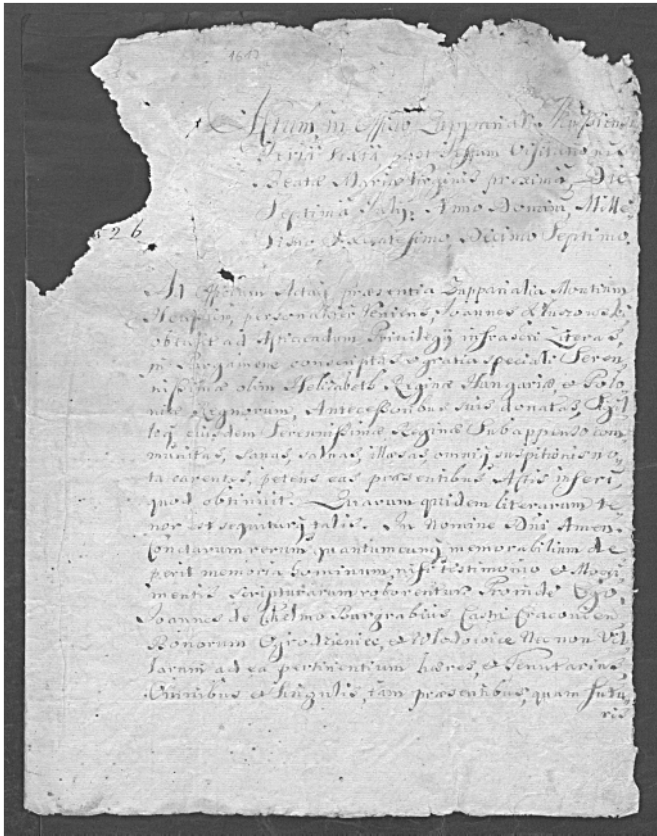 1617
Actum in Officio Zuppariali
Feria Sexta post festum Visitationis
Beatae Mariae Virginis proxima, Die
Septima July: Anno Domini, Mille
simo Sexcentesimo Decimo Septimo
526
Ad Officium Actaq praesentia Zupparialia Montium
personaliter veniens, Joannes
obtulit ad Privilegij infrascr Literas,
in Pargameno conscriptas, gratia speciali Seren
nissimae olim Helisabeth Reginae Hungariae, et Polo
niae Regnorum, Antecessoribus suis donatas, Sigil
loq eiusdem Serennissimae Reginae Subappenso com
munitas, Sanas, salvas, illaesas, omniq suspitionis no
ta carentes, petens eas praesentibus Actis inseri
quod obtinuit. Quarum quidem literarum te
nor est sequiturq talis. In Nomine Dni Amen.
Cunctarum rerum quantumcunq memorabilium de
perit memoria hominum, nisi testimonio et
mentis Scripturarum roborentur. Proinde Ego,
Joannes de Chelmo Burgrabius Castri Cracovien
Bonorum Ogrodzieniec, et Wlodowice Necnon Vil
larum ad ea pertinentium haeres, et Tenutarius,
Omnibus et Singulis, tam praesentibus, quam futu
ris